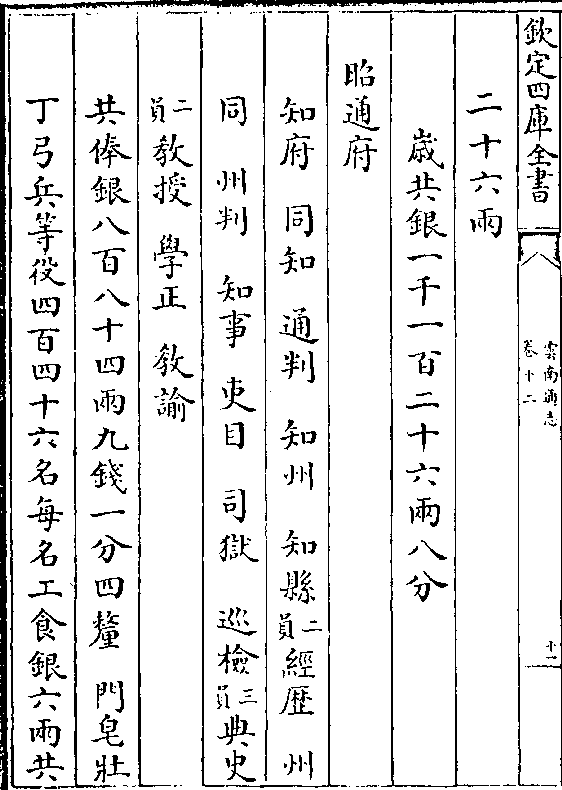 欽定四庫全書
雲南通志
卷十二
十一
二十六兩
歲共銀一千一百二十六兩八分
昭通府
知府　同知　通判　知州　知縣二員經歴　州
同　州判　知事　吏目　司獄　巡檢三員典史
二員教授　學正　教諭
共俸銀八百八十四兩九錢一分四釐　門皂壯
丁弓兵等役四百四十六名每名工食銀六兩共